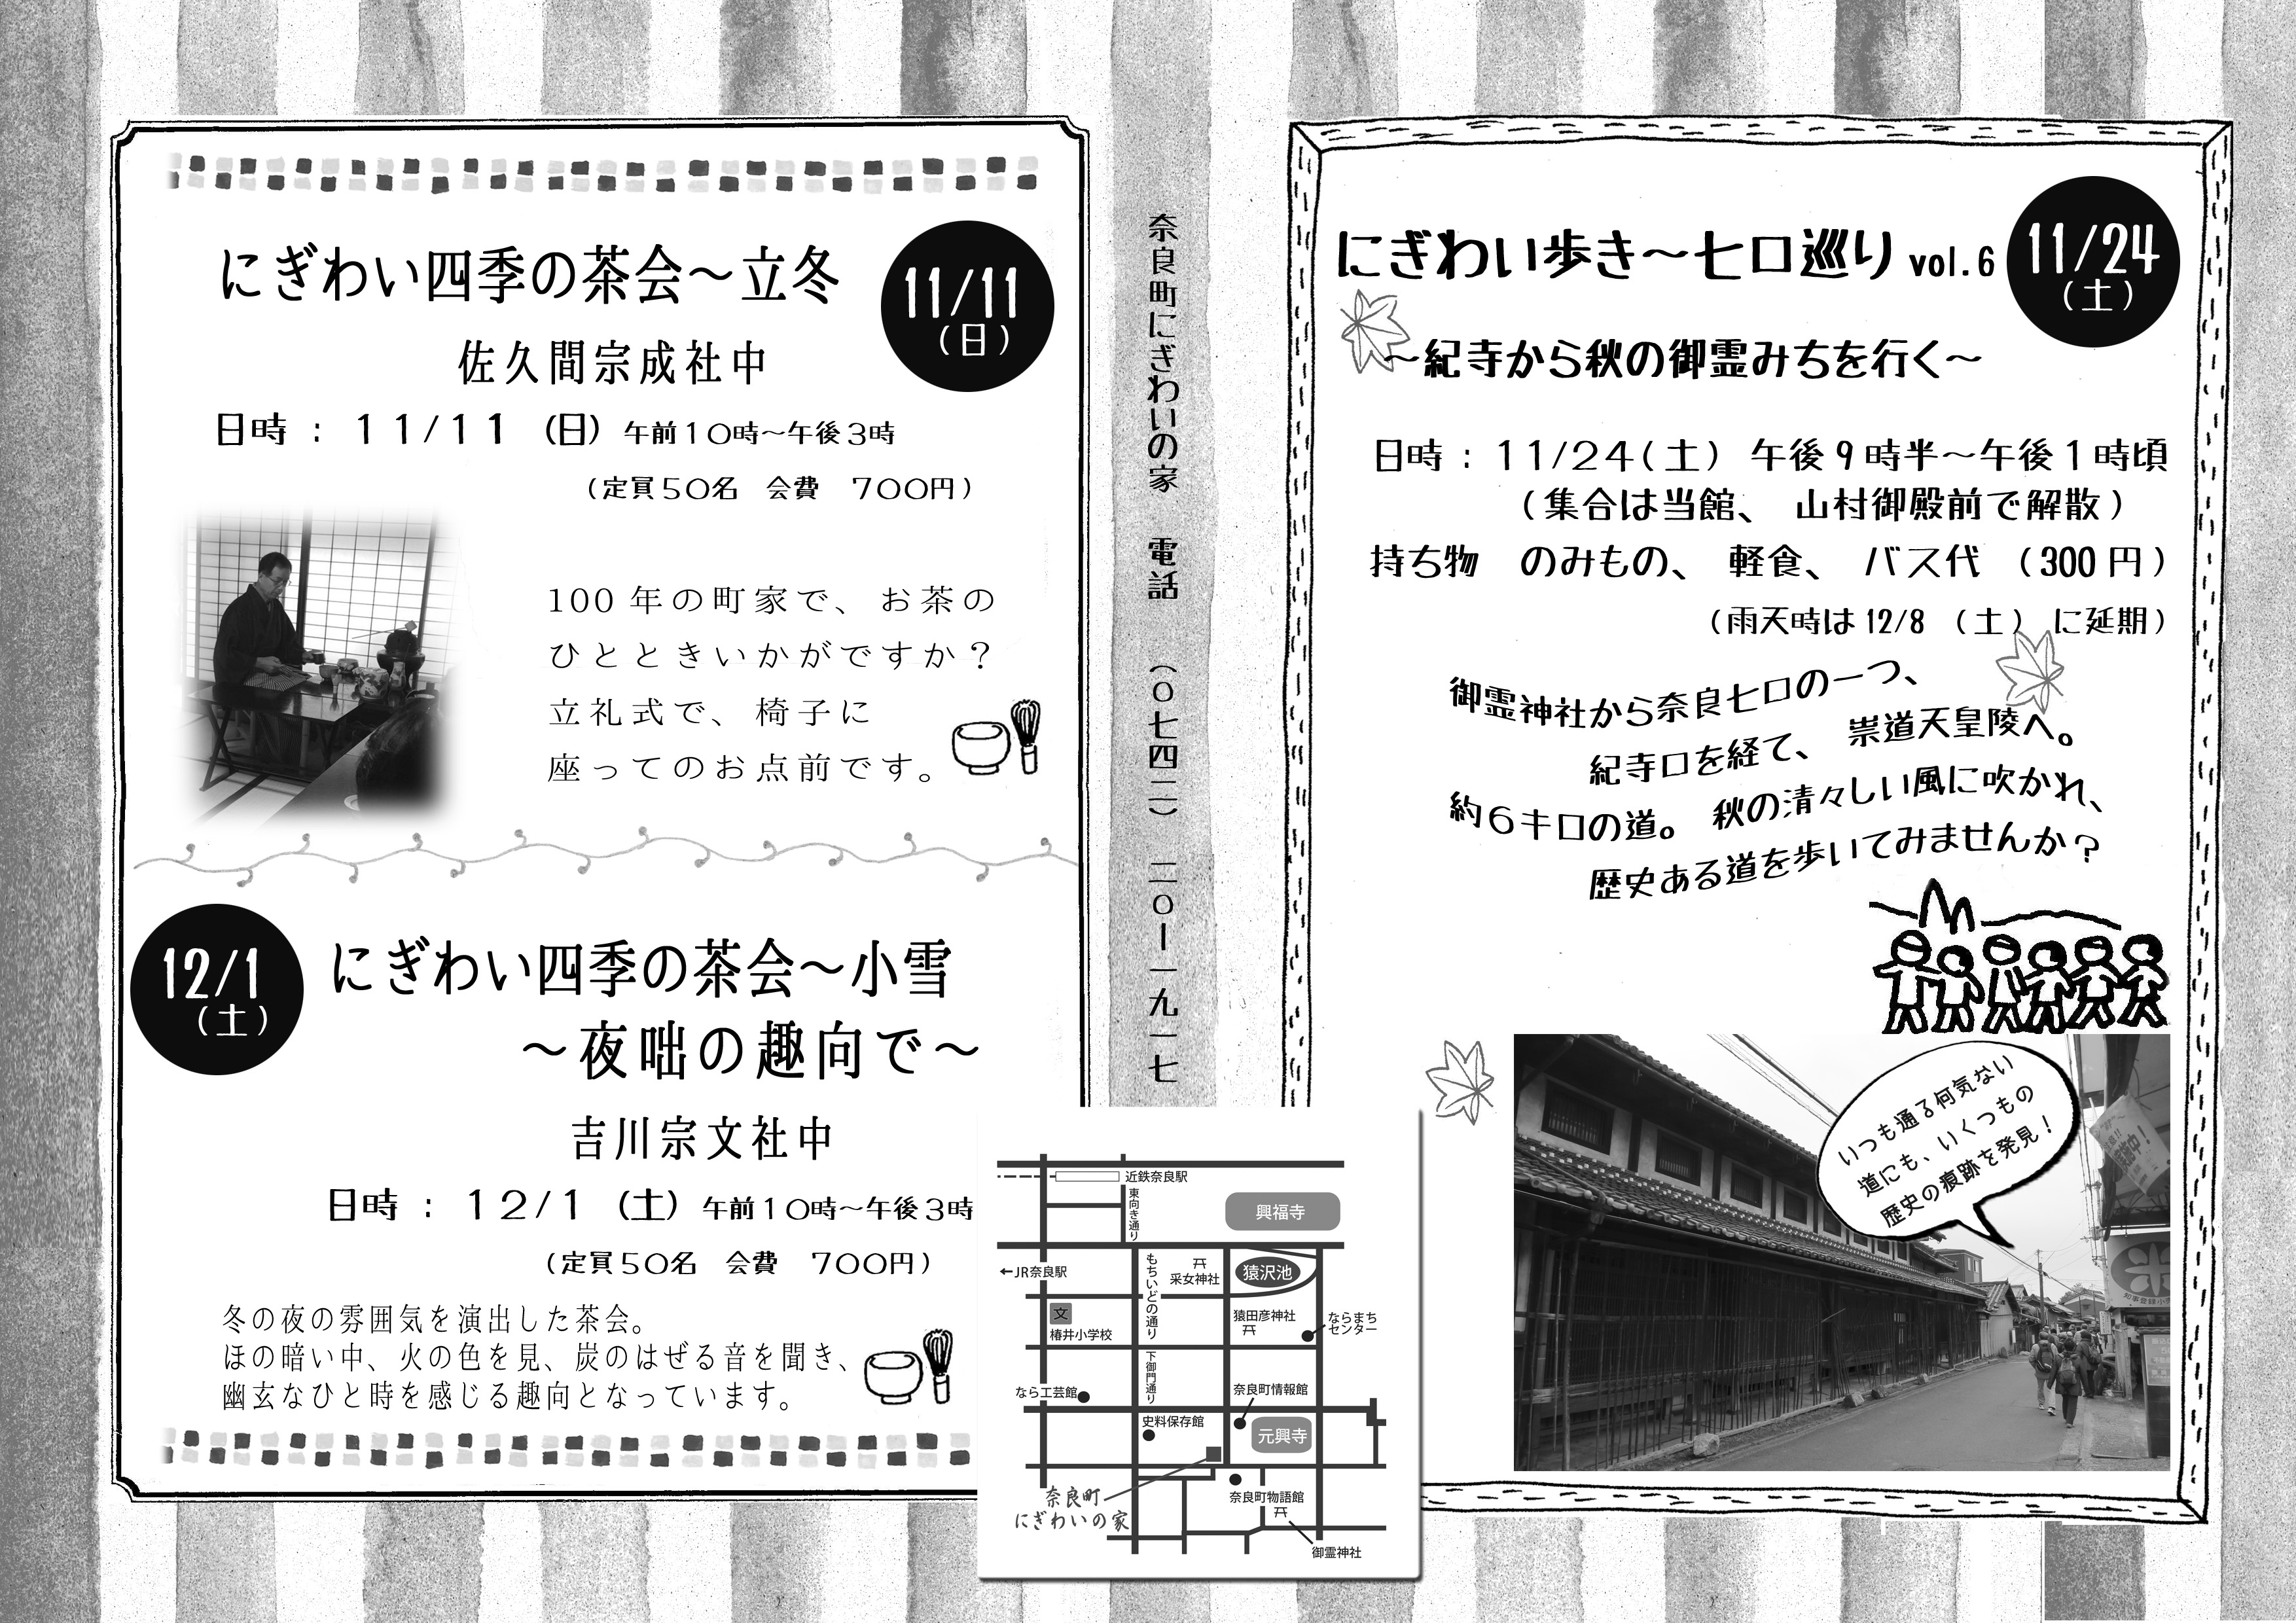 にぎわい四季の茶会～立冬
11/11
（日）
佐久間宗成社中
日時 ： 11/11 （日） 午前10時～午後3時
（定員50名 会費 700円）
100 年の町家で、 お茶の
ひとときいかがですか？
立礼式で、 椅子に
座ってのお点前です。
12/1
（土）
にぎわい四季の茶会～小雪
～夜咄の趣向で～
吉川宗文社中
日時 ： 12/1 （土） 午前10時～午後3時
（定員50名 会費 700円）
冬の夜の雰囲気を演出した茶会。
ほの暗い中、火の色を見、炭のはぜる音を聞き、
幽玄なひと時を感じる趣向となっています。
奈良町にぎわいの家 電話 （〇七四二） 二〇ー一九一七
にぎわい歩き～七口巡り vol.6
11/24
（土）
～紀寺から秋の御霊みちを行く～
日時 : 11/24(土） 午後9時半～午後1時頃
（集合は当館、 山村御殿前で解散）
持ち物 のみもの、 軽食、 バス代 （300 円）
（雨天時は 12/8 （土） に延期）
御霊神社から奈良七口の一つ、
紀寺口を経て、 崇道天皇陵へ。
約6キロの道。 秋の清々しい風に吹かれ、
歴史ある道を歩いてみませんか？
いつも通る何気ない
道にも、いくつもの
歴史の痕跡を発見！
近鉄奈良駅
東向き通り
興福寺
←JR奈良駅
もちいどの通り
采女神社
猿沢池
文
椿井小学校
猿田彦神社
ならまち
センター
下御門通り
なら工芸館
奈良町情報館
史料保存館
元興寺
奈良町
にぎわいの家
奈良町物語館
御霊神社